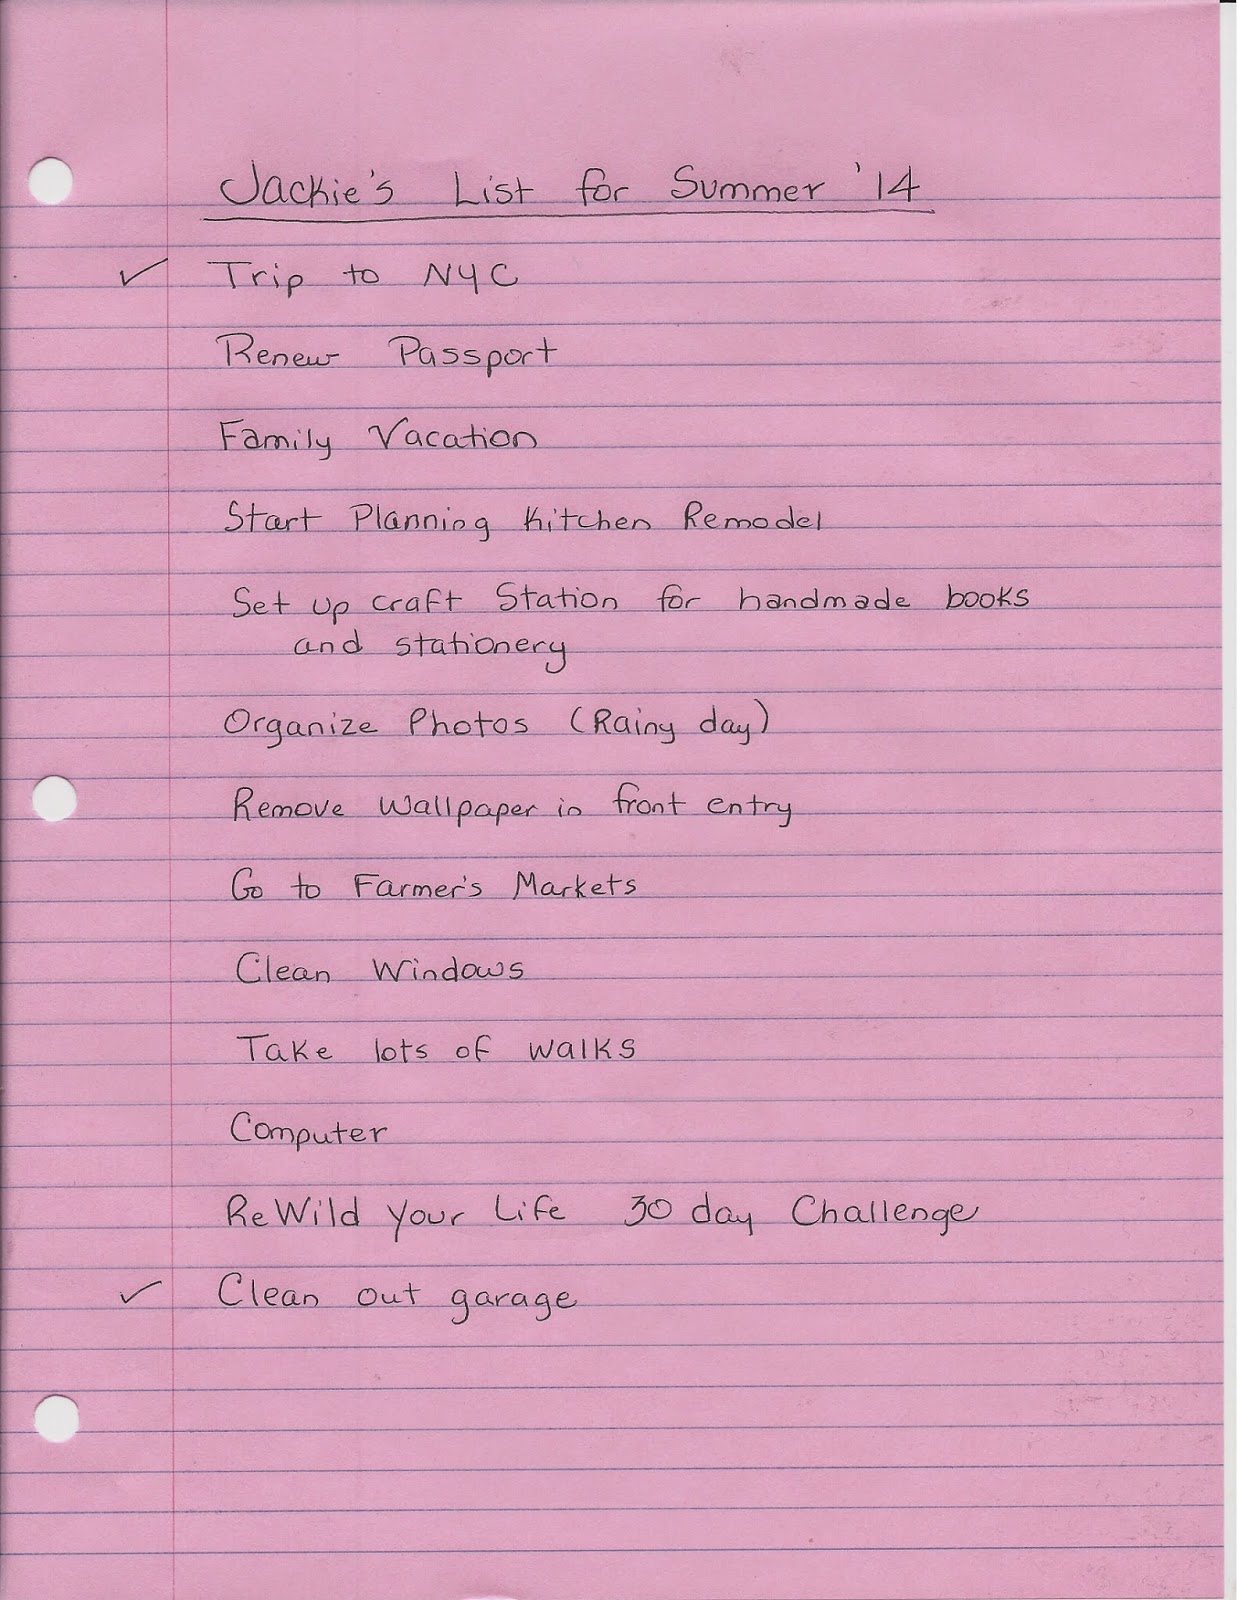 Jackie's List for Summer '14
✓ Trip to NYC
Renew Passport
Family Vacation
Start Planning Kitchen Remodel
Set up craft Station for handmade books
and stationery
Organize Photos (Rainy day)
Remove Wallpaper in front entry
Go to Farmer's Markets
Clean Windows
Take lots of walks
Computer
ReWild Your Life 30 day Challenge
✓ Clean out garage